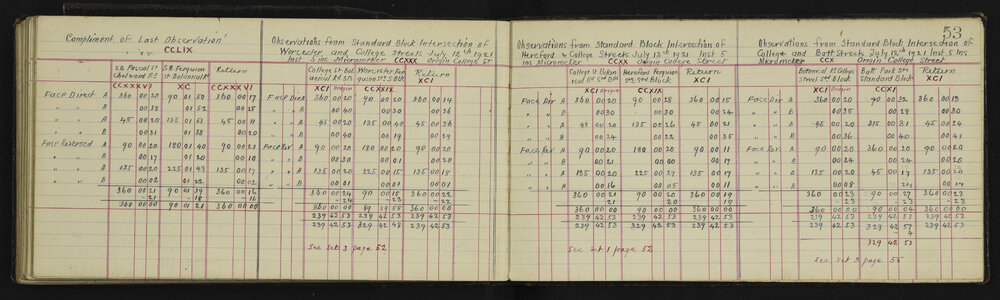 53
Compliment of Last Observation'
CCLIX
S B Pascal St Chelwood P.S S B Ferguson St Botanical Rd Return
CCXXXVI XC CCXXXVI
Face Direct A 360 00 20 90 01 50 360 00 17
" " B 00 38 01 52 00 28
" " A 45 00 20 135 01 51 45 00 11
" " B 00 31 01 38 00 20
Face Reversed A 90 00 20 180 01 40 90 00 21
" " B 00 17 01 20 00 10
" " A 135 00 20 225 01 43 135 00 17
" " B 00 02 01 22 00 02
360 00 21 90 01 39 360 00 16
-21 -18 -16
360 00 00 90 01 21 360 00 00
Observations from Standard Block Intersection of
Worcester and College Streets July 12th 1921
Inst 5 ins Micromarker CCXXX Origin College St
College St Bot Worcester Fer Return
XCI Origin CCXXIX XCI
Face Direct A 360 00 20 90 00 20 360 00 14
" " B 00 40 00 30 00 36
" " A 45 00 20 135 00 40 45 00 38
" " B 00 40 00 19 00 29
Face Rev A 90 00 20 180 00 20 90 00 20
" " B 00 30 00 01 00 20
" " A 135 00 20 225 00 15 135 00 15
" " B 00 01 00 01 00 01
360 00 24 90 00 18 360 00 22
-24 -23
360 00 00 89 59 55 360 00 00
239 42 53 239 42 53 239 42 53
239 42 53 329 42 48 239 42 53
See Set 3 page 52
Observations from Standard Block Intersection of
Hereford & College Streets July 12th 1921 Inst 5
ins Micrometer CCXX Origin College Street
College St Botan Hereford Ferguson Return
XCI Origin CCXIX XCI
Face Dir A 360 00 20 90 00 28 360 00 15
" " B 00 30 00 30 00 24
" " A 45 00 20 135 00 26 45 00 21
" " B 00 24 00 22 00 35
Face Rev A 90 00 20 180 00 20 90 00 11
" " B 00 21 00 00 00 17
" " A 135 00 20 225 00 27 135 00 17
" " B 00 16 00 05 00 11
360 00 21 90 00 20 360 00 19
21 20 19
360 00 00 90 00 00 360 00 00
239 42 53 239 42 53 239 42 53
239 42 53 329 42 53 239 42 53
See Set 1 page 52
Observations from Standard Block Intersection of
College and Batt Streets July 12th 1921 Inst 5 ins
Micrometer CCX Origin College Street
Botanical Rd College Batt Park Sts Return
Street Std Block Standard Block
XCI Origin CCXI XCI
Face Dir A 360 00 20 90 00 32 360 00 13
" " B 00 35 00 28 00 30
" " A 45 00 20 315 00 31 45 00 24
" " B 00 36 00 40 00 41
Face Rev A 90 00 20 360 00 20 90 00 20
" " B 00 24 00 24 00 20
" " A 135 00 20 45 00 17 135 00 20
" " B 00 08 24 00 14
360 00 23 90 00 27 360 00 23
-23 -23 -23
360 00 00 90 00 04 360 00 00
239 42 53 239 42 53 239 42 53
239 42 53 329 42 57 239 42 53
4
329 42 53
See Set 3 page 55